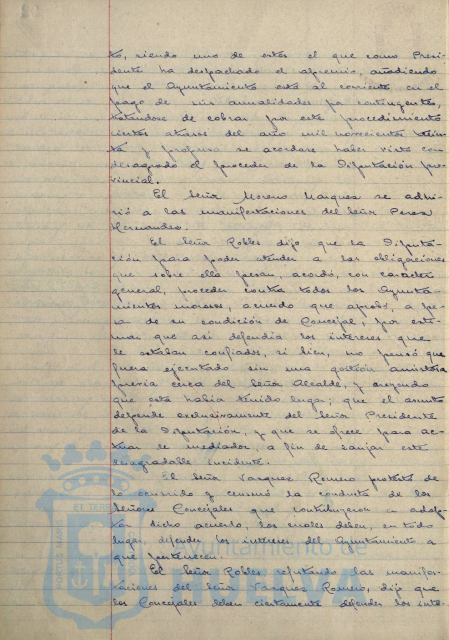 to, siendo uno de estos el que como Presi-
dente ha despachado el apremio, añadiendo
que el Ayuntamiento está al corriente en el
pago de sus anualidades por contingentes,
tratándose de cobrar por este procedimiento
ciertos atrasos del año mil novecientos trein-
ta y propuso se acordara haber visto con
desagrado el proceder de la Diputación pro-
vincial.
El Señor Moreno Marquez se adhi-
rió a las manifestaciones del Señor Perez
Hernandez.
El Señor Robles dijo que la Diputa-
ción para poder atender a las obligaciones
que sobre ella pesan, acordó, con caracter
general, proceder contra todos los Ayunta-
mientos morosos, acuerdo que aprobó, a pe-
sar de su condición de Concejal, por esti-
mar que asi defendia los intereses que
le estaban confiados, si bien, no pensó que
fuera ejecutado sin una gestión amistosa
previa cerca del Señor Alcalde, y creyendo
que esta habia tenido lugar; que el asunto
depende exclusivamente del Señor Presidente
de la Diputación, y que se ofrece para ac-
tuar de mediador, a fin de zanjar este
desagradable incidente.
El Señor Vazquez Romero protestó de
lo ocurrido y censuró la conducta de los
Señores Concejales que contribuyeron a adop-
tar dicho acuerdo, los cuales deben, en todo
lugar, defender los intereses del Ayuntamiento a
que pertenecen.
El Señor Robles refutando las manifes-
taciones del Señor Vazquez Romero, dijo que
los Concejales deben ciertamente defender los inte-
Ayuntamiento de
HUELVA